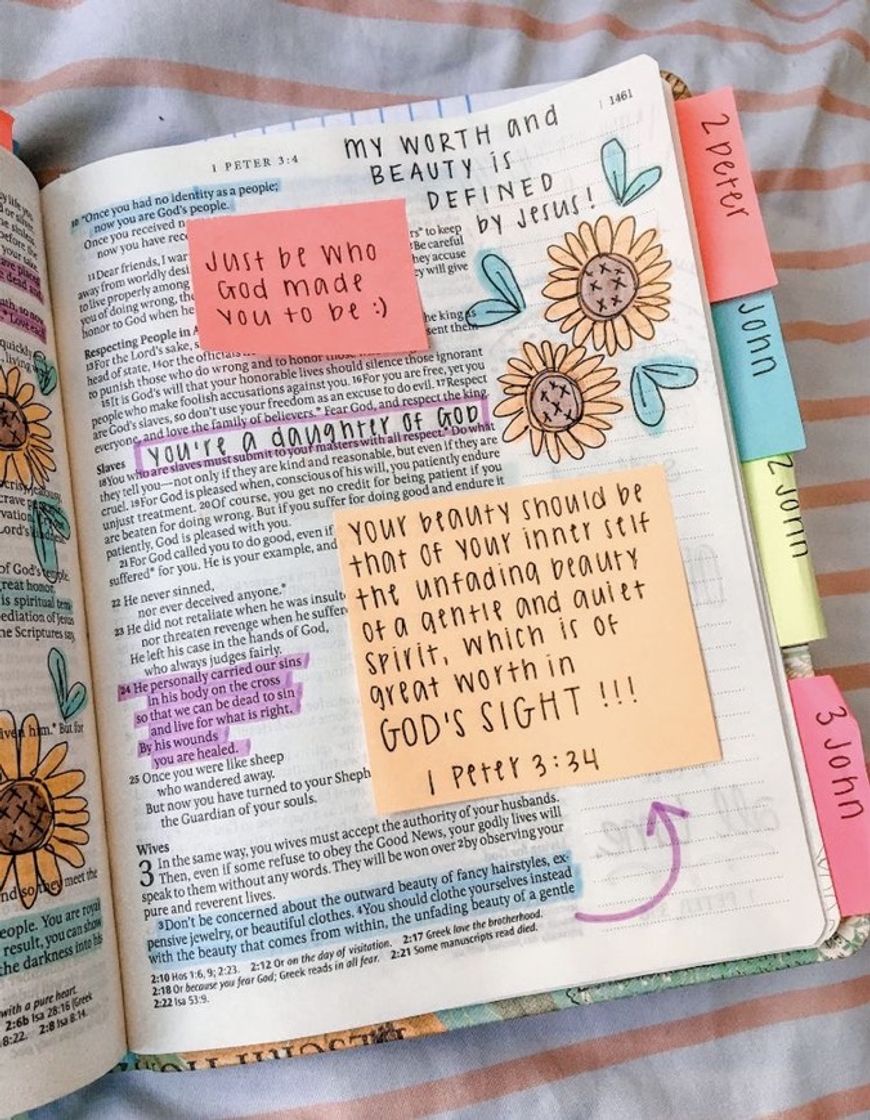 1 PETER 3:4
1461
MY WORTH and
BEAUTY iS
DEFINED
by Jesus!
10 "Once you had no identity as a people;
now you are God's people.
Once you received n
now you have rece
11 Dear friends, I war
rs" to keep
away from worldly desi
Be careful
to live properly among
hey accuse
you of doing wrong, the
ey will give
honor to God when he
Just be who
God made
you to be :)
Respecting People in A
13 For the Lord's sake, s
the king as
head of state, 14 or the officials
sent them
to punish those who do wrong and to honor those
15 It is God's will that your honorable lives should silence those ignorant
people who make foolish accusations against you. 16 For you are free, yet you
are God's slaves, so don't use your freedom as an excuse to do evil. 17 Respect
everyone, and love the family of believers.* Fear God, and respect the king.
you're a daughter of God
Slaves
18 You who are slaves must submit to your masters with all respect.* Do what
they tell you—not only if they are kind and reasonable, but even if they are
cruel. 19 For God is pleased when, conscious of his will, you patiently endure
unjust treatment. 20 Of course, you get no credit for being patient if you
are beaten for doing wrong. But if you suffer for doing good and endure it
patiently, God is pleased with you.
21 For God called you to do good, even if
suffered* for you. He is your example, and
22 He never sinned,
nor ever deceived anyone.*
23 He did not retaliate when he was insult
nor threaten revenge when he suffere
He left his case in the hands of God,
who always judges fairly.
24 He personally carried our sins
in his body on the cross
so that we can be dead to sin
and live for what is right.
By his wounds
you are healed.
25 Once you were like sheep
who wandered away.
But now you have turned to your Sheph
the Guardian of your souls.
your beauty should be
that of your inner self
the unfading beauty
of a gentle and quiet
spirit, which is of
great worth in
GOD'S SIGHT !!!
1 Peter 3:34
Wives
3 In the same way, you wives must accept the authority of your husbands.
Then, even if some refuse to obey the Good News, your godly lives will
speak to them without any words. They will be won over 2 by observing your
pure and reverent lives.
3 Don't be concerned about the outward beauty of fancy hairstyles, ex-
pensive jewelry, or beautiful clothes. 4 You should clothe yourselves instead
with the beauty that comes from within, the unfading beauty of a gentle
2:10 Hos 1:6, 9; 2:23. 2:12 Or on the day of visitation. 2:17 Greek love the brotherhood.
2:18 Or because you fear God; Greek reads in all fear. 2:21 Some manuscripts read died.
2:22 Isa 53:9.
2 peter
John
2 John
3 John
of God's temple.
reat honor.
is spiritual tem
ediation of Jesus
he Scriptures say,
iven him." But for
nd so they meet the
eople. You are royal
result, you can show
the darkness into his
with a pure heart.
2:6b Isa 28:16 (Greek
8:22. 2:8 Isa 8:14.